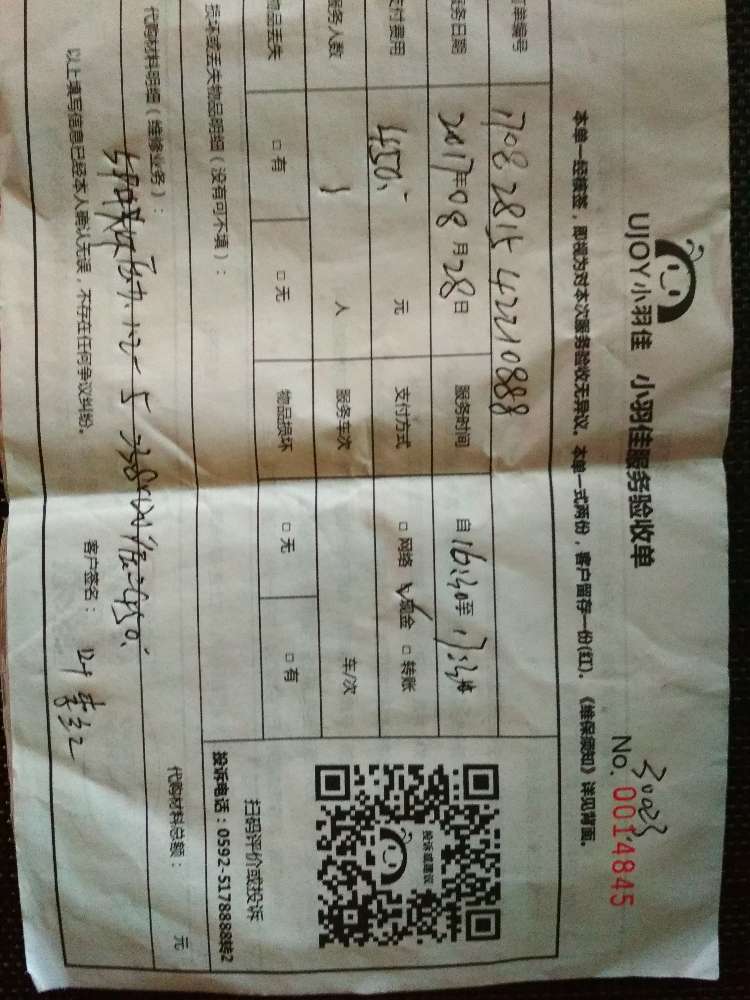 UJOY小羽佳 小羽佳服务验收单
No. 0014845
本单一经核签，即视为对本次服务验收无异议。本单一式两份，客户留存一份(红)。《维保须知》详见背面。
单编号 17082815422210888
务日期 2017年08月28日 服务时间 自16:30至
支付费用 450 元 支付方式 □网络 ☑现金 □转账
服务人数 1 人 服务车次 车/次
物品丢失 □有 □无 物品损坏 □无 □有
损坏或丢失物品明细（没有可不填）：
投诉或建议
扫码评价或投诉
投诉电话：0592-5178888转2
代购材料明细（维修业务）：
代购材料总额： 元
以上填写信息已经本人确认无误，不存在任何争议纠纷。 客户签名：